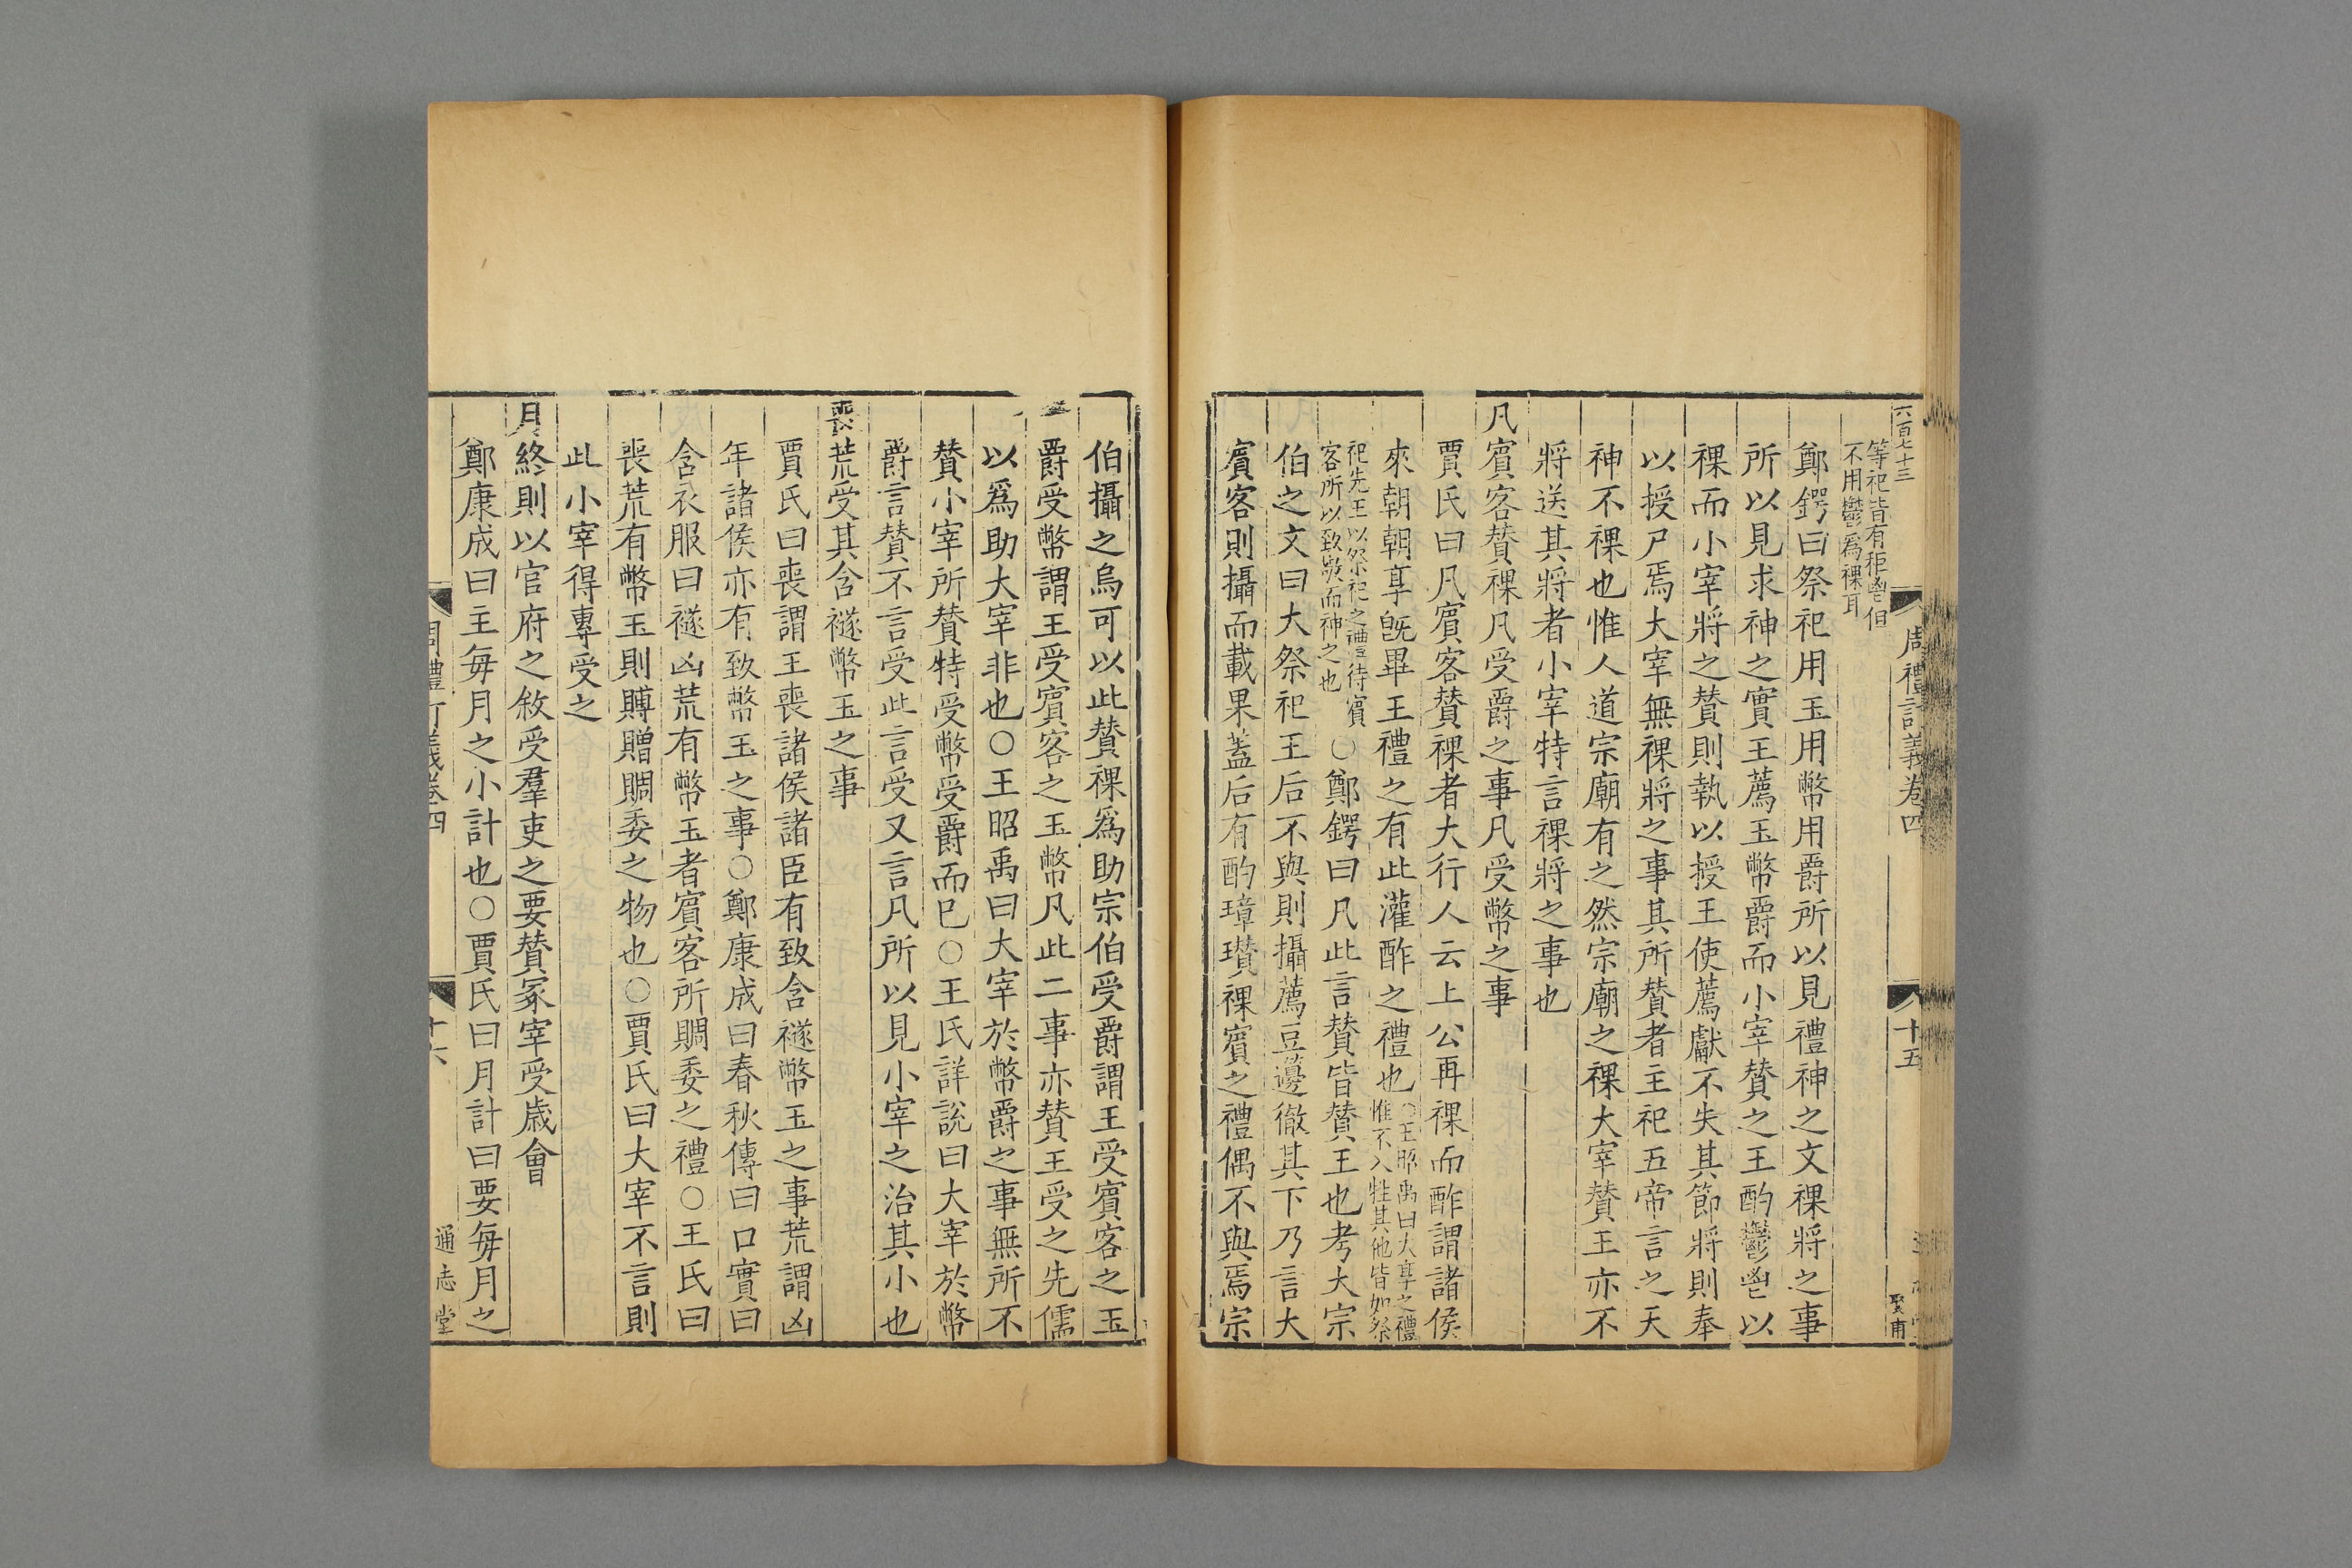 六百七十三
周禮訂義卷四
十五
等祀皆有秬鬯但
不用鬱爲祼耳
鄭鍔曰祭祀用玉用幣用爵所以見禮神之文祼將之事
所以見求神之實王薦玉幣爵而小宰賛之王酌鬱鬯以
祼而小宰將之賛則執以授王使薦獻不失其節將則奉
以授尸焉大宰無祼將之事其所賛者主祀五帝言之天
神不祼也惟人道宗廟有之然宗廟之祼大宰賛王亦不
將送其將者小宰特言祼將之事也
凡賓客賛祼凡受爵之事凡受幣之事
賈氏曰凡賓客賛祼者大行人云上公再祼而酢謂諸侯
來朝朝享旣畢王禮之有此灌酢之禮也
○王昭禹曰大享之禮
惟不入牲其他皆如祭
祀先王以祭祀之禮待賓
客所以致敬而神之也
○鄭鍔曰凡此言賛皆賛王也考大宗
伯之文曰大祭祀王后不與則攝薦豆籩徹其下乃言大
賓客則攝而載果蓋后有酌璋瓚祼賓之禮偶不與焉宗
伯攝之烏可以此賛祼爲助宗伯受爵謂王受賓客之玉
爵受幣謂王受賓客之玉幣凡此二事亦賛王受之先儒
以爲助大宰非也○王昭禹曰大宰於幣爵之事無所不
賛小宰所賛特受幣受爵而已○王氏詳說曰大宰於幣
爵言賛不言受此言受又言凡所以見小宰之治其小也
喪荒受其含襚幣玉之事
賈氏曰喪謂王喪諸侯諸臣有致含襚幣玉之事荒謂凶
年諸侯亦有致幣玉之事○鄭康成曰春秋傳曰口實曰
含衣服曰襚凶荒有幣玉者賓客所賙委之禮○王氏曰
喪荒有幣玉則賻贈賙委之物也○賈氏曰大宰不言則
此小宰得專受之
月終則以官府之敘受羣吏之要賛冢宰受歲會
鄭康成曰主每月之小計也○賈氏曰月計曰要每月之
周禮訂義卷四
十六
通志堂